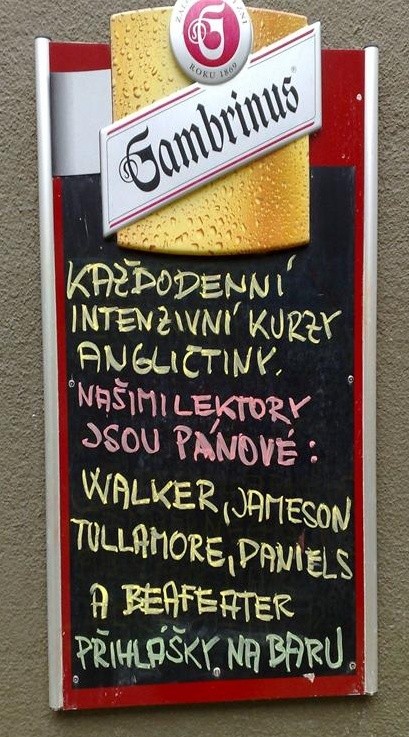 ZALOŽENÍ
ROKU 1869
G
Gambrinus®
KAŽDODENNÍ
INTENZIVNÍ KURZY
ANGLIČTINY.
NAŠIMI LEKTORY
JSOU PÁNOVÉ:
WALKER, JAMESON
TULLAMORE, DANIELS
A BEAFEATER
PŘIHLÁŠKY NA BARU